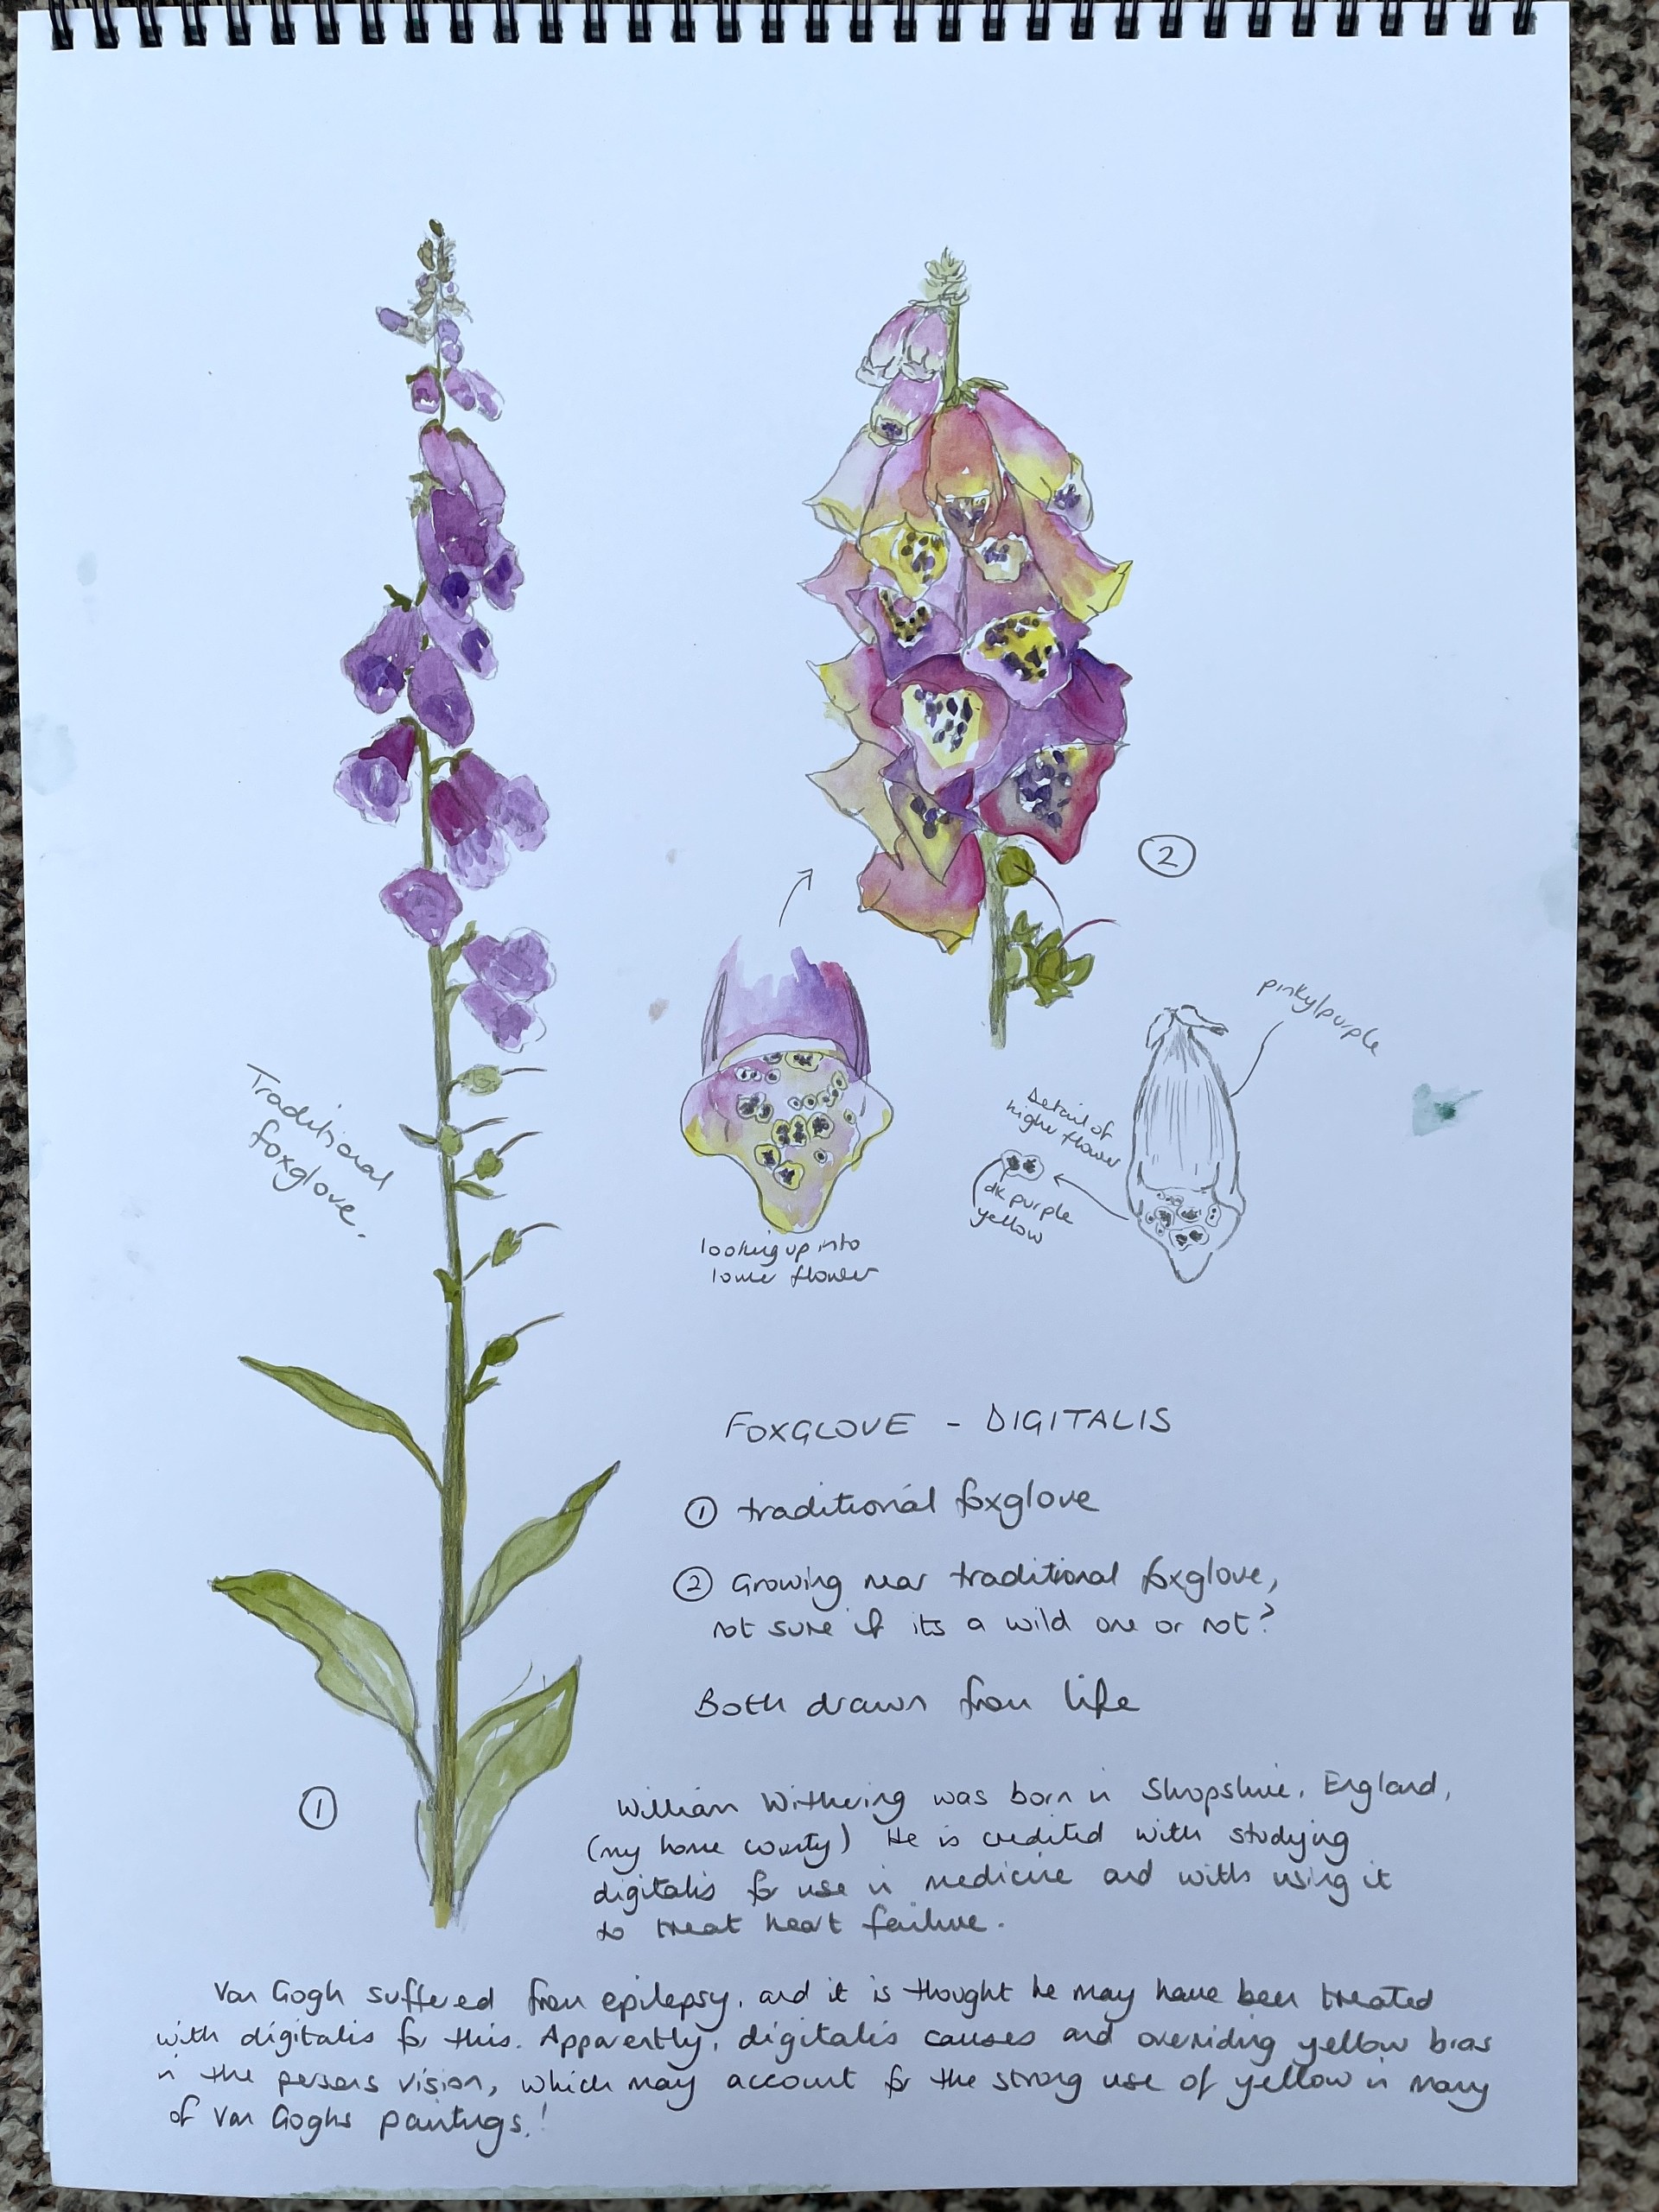 ②
pinky/purple
Detail of
higher flower
dk purple
yellow
Traditional
foxglove.
looking up into
lower flower
FOXGLOVE - DIGITALIS
① traditional foxglove
② Growing near traditional foxglove,
not sure if its a wild one or not?
Both drawn from life
①
William Withering was born in Shropshire, England,
(my home county) He is credited with studying
digitalis for use in medicine and with using it
to treat heart failure.
Van Gogh suffered from epilepsy, and it is thought he may have been treated
with digitalis for this. Apparently, digitalis causes and overriding yellow bias
in the persons vision, which may account for the strong use of yellow in many
of Van Goghs paintings!